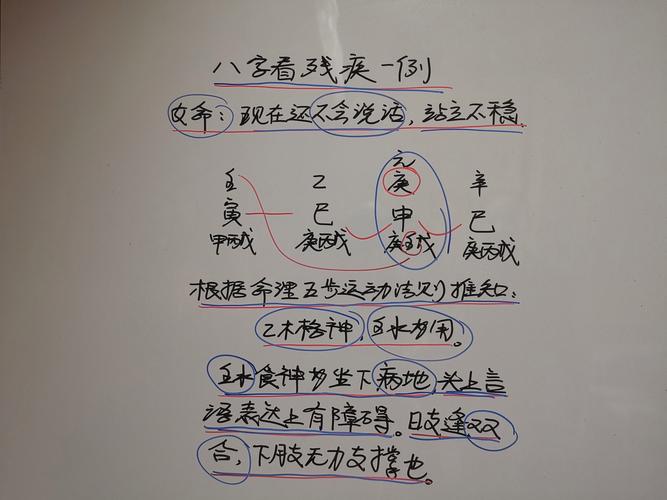 八字看残疾一例
女命：现在还不会说话，站立不稳。
元
壬 乙 庚 辛
寅 巳 申 巳
甲丙戊 庚丙戊 庚壬戊 庚丙戊
根据命理五步运动法则推知：
乙木格神，壬水为用。
壬水食神为坐下病地 关上言
语表达上有障碍。日支逢双
合，下肢无力支撑也。